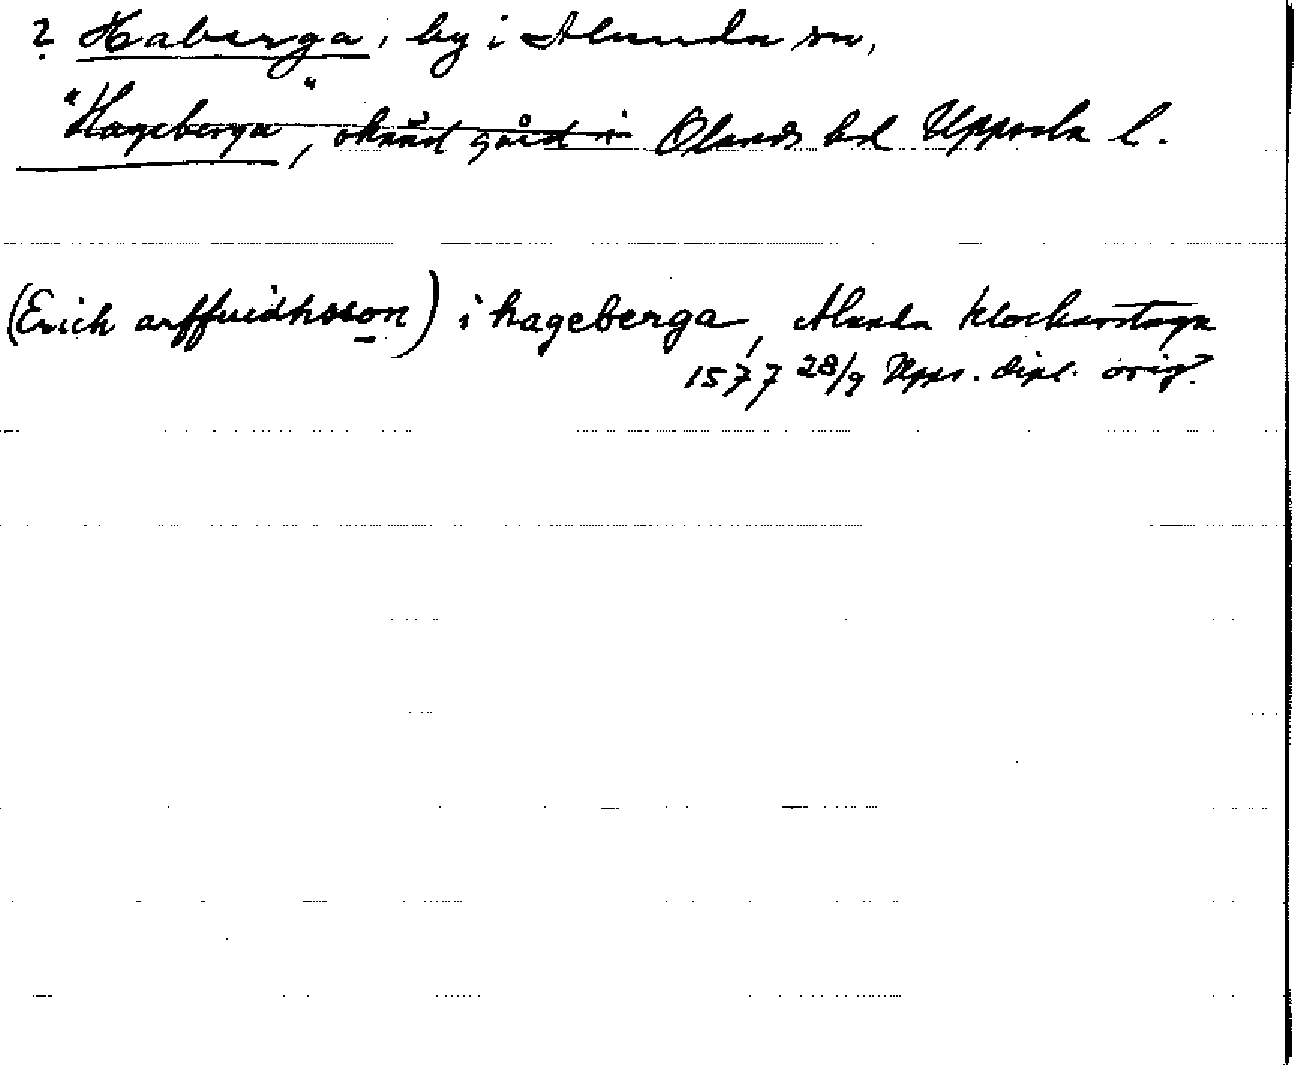 ? Haberga, by i Alunda sn,
"Hageberga", okänd gård i Olands hd Uppsala l.
(Erich arffuidhsson) i hageberga, Alunda klockarstuga
1577 28/9 Upps. dipl. orig.